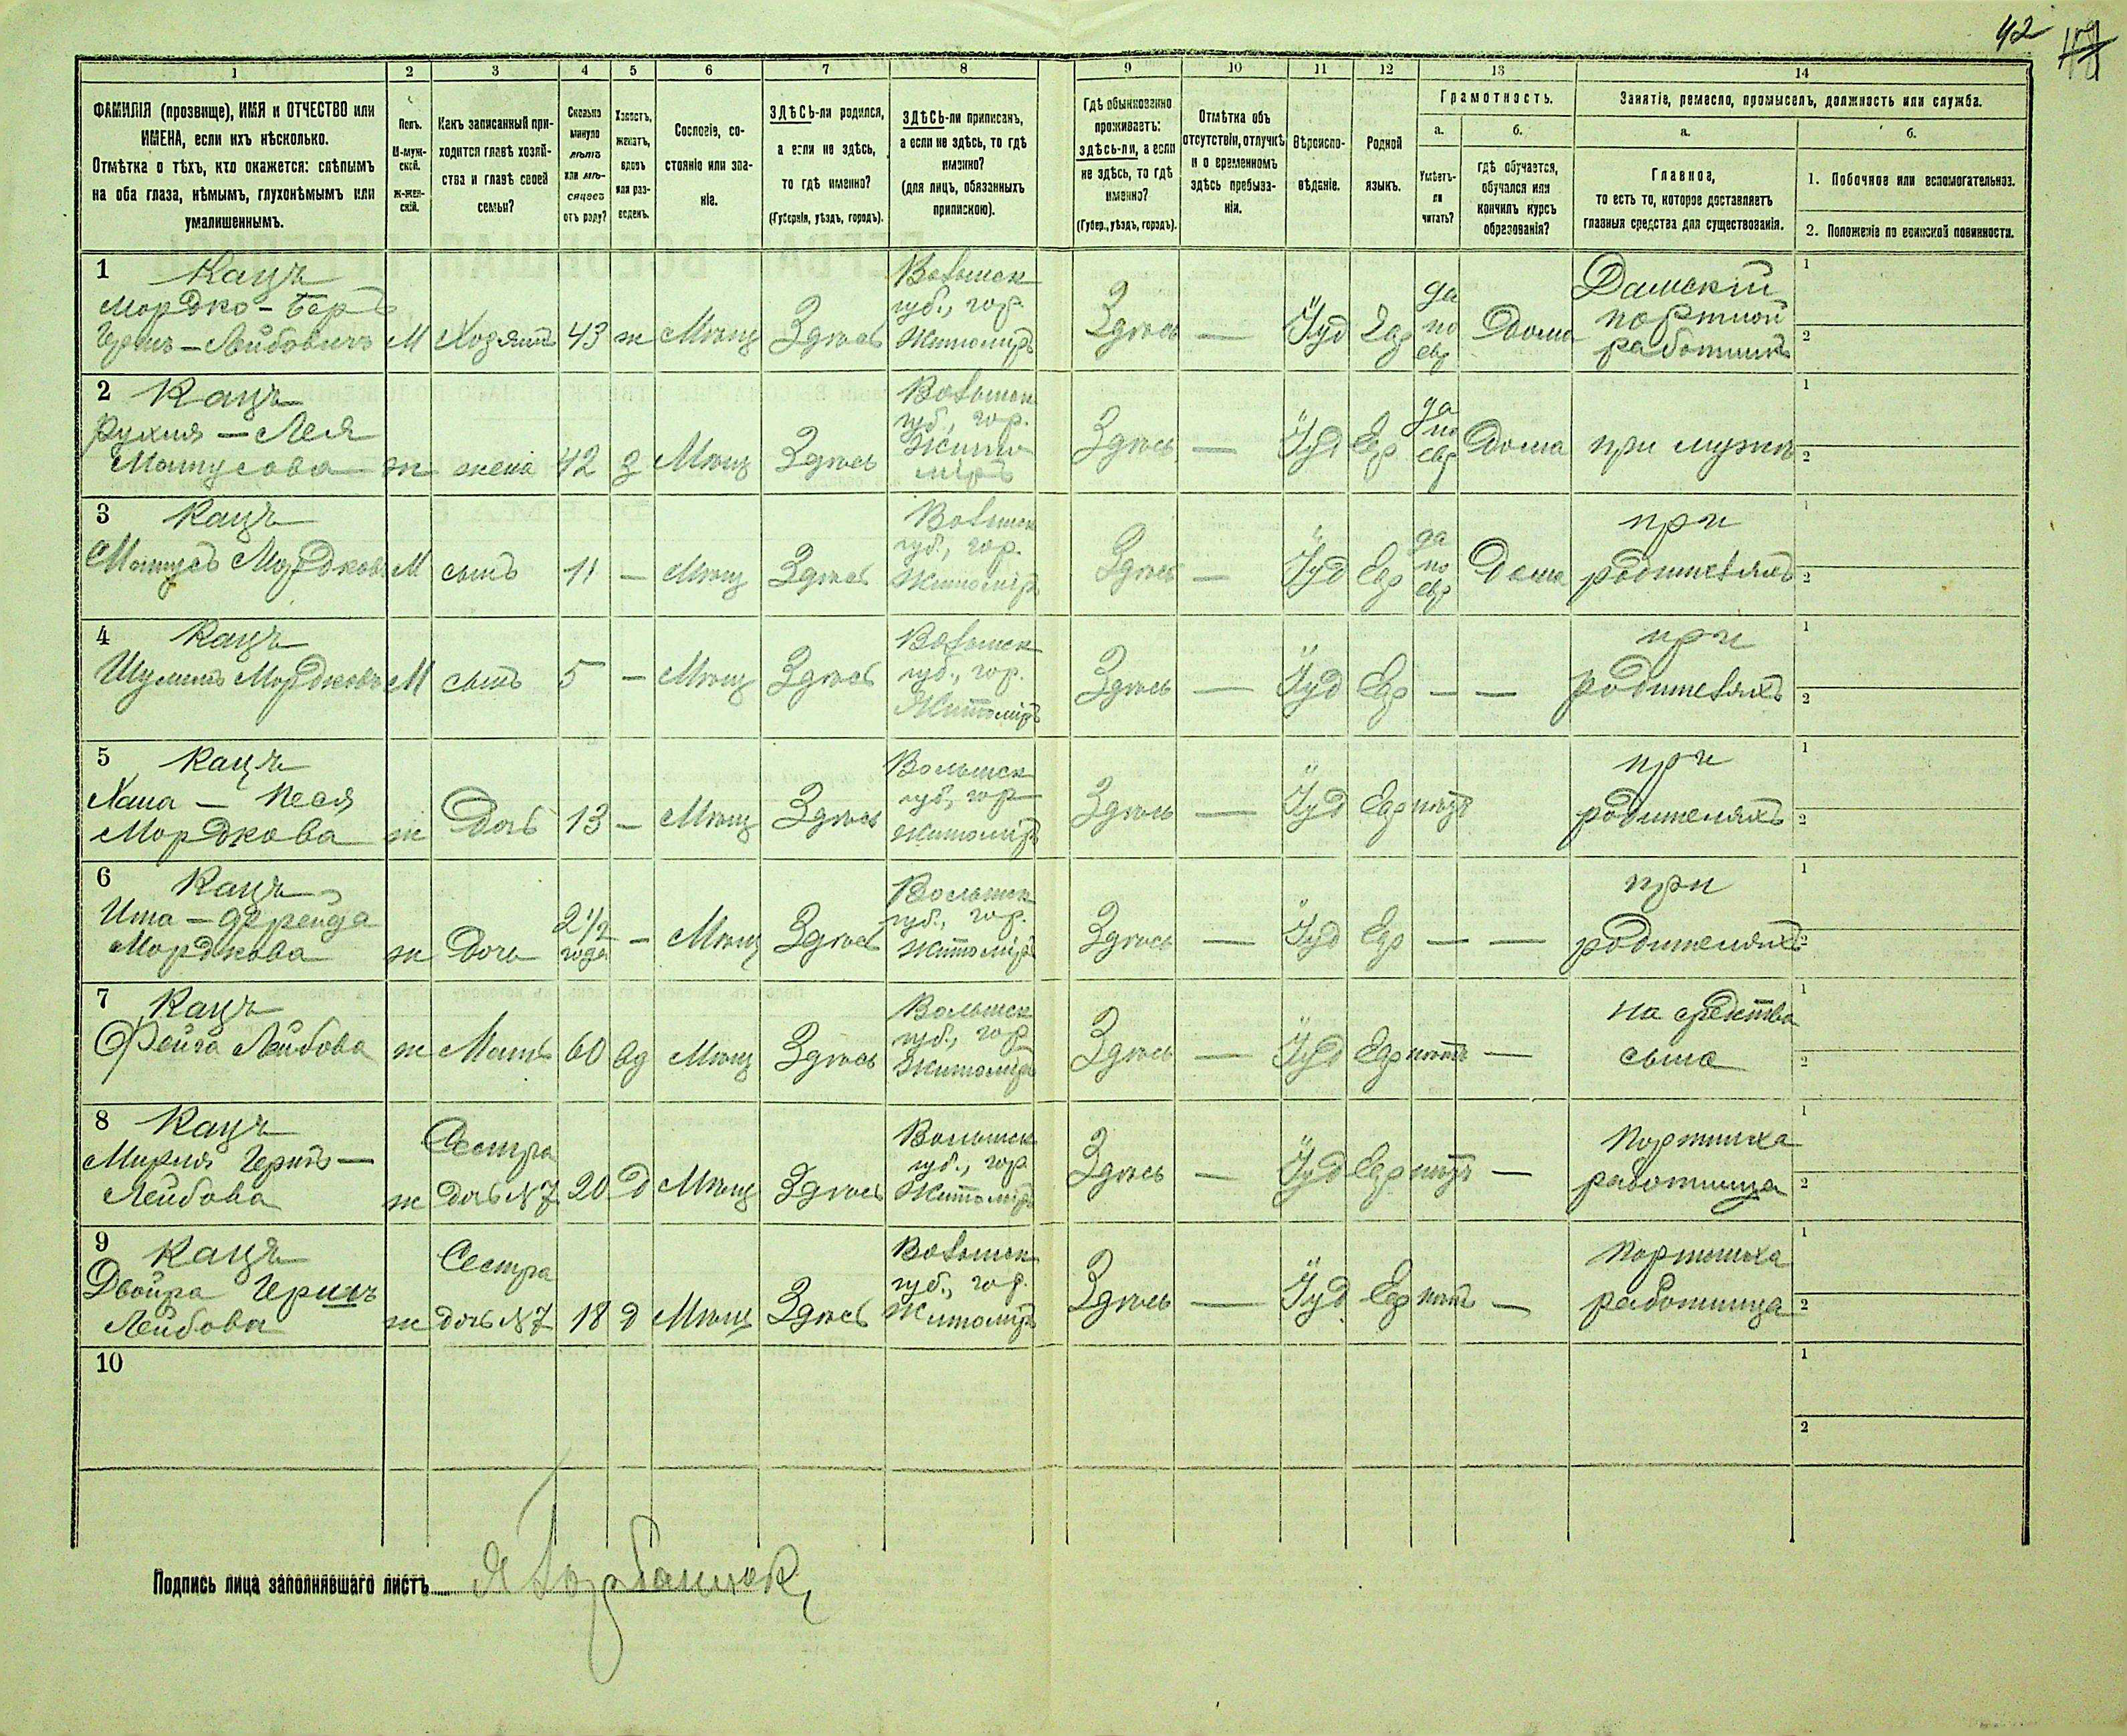 42
1 2 3 4 5 6 7 8 9 10 11 12 13 14
ФАМИЛІЯ (прозвище), ИМЯ и ОТЧЕСТВО или
ИМЕНА, если ихъ нѣсколько.
Отмѣтка о тѣхъ, кто окажется: слѣпымъ
на оба глаза, нѣмымъ, глухонѣмымъ или
умалишеннымъ.
Полъ.
М-муж-
ской.
Ж-жен-
скій.
Какъ записанный при-
ходится главѣ хозяй-
ства и главѣ своей
семьи?
Сколько
минуло
лѣтъ
или мѣ-
сяцевъ
отъ роду?
Холостъ,
женатъ,
вдовъ
или раз-
веденъ.
Сословіе, со-
стояніе или зва-
ніе.
ЗДѢСЬ-ли родился,
а если не здѣсь,
то гдѣ именно?
(Губернія, уѣздъ, городъ).
ЗДѢСЬ-ли приписанъ,
а если не здѣсь, то гдѣ
именно?
(для лицъ, обязанныхъ
припискою).
Гдѣ обыкновенно
проживаетъ:
здѣсь-ли, а если
не здѣсь, то гдѣ
именно?
(Губер., уѣздъ, городъ).
Отмѣтка объ
отсутствіи, отлучкѣ
и о временномъ
здѣсь пребыва-
ніи.
Вѣроиспо-
вѣданіе.
Родной
языкъ.
Грамотность.
а.
Умѣетъ-
ли
читать?
б.
гдѣ обучается,
обучался или
кончилъ курсъ
образованія?
Занятіе, ремесло, промыселъ, должность или служба.
а.
Главное,
то есть то, которое доставляетъ
главныя средства для существованія.
б.
1. Побочное или вспомогательное.
2. Положеніе по воинской повинности.
1 Кацъ
Мордко-Беръ
Гершъ-Лейбовичъ М Хозяинъ 43 ж Мѣщ Здѣсь
Волынск
губ., гор.
Житоміръ
Здѣсь — Іуд Евр
да
по
евр
Дома
Дамскій
портной
работникъ
1
2
2 Кацъ
Рухля-Лея
Матусова ж жена 42 з Мѣщ Здѣсь
Волынск
губ., гор.
Жито
міръ
Здѣсь — Іуд Евр
да
по
евр
Дома при мужѣ
1
2
3 Кацъ
Матусъ Мордковъ М сынъ 11 — Мѣщ Здѣсь
Волынск
губ., гор.
Житоміръ
Здѣсь — Іуд Евр
да
по
евр
Дома
при
родителяхъ
1
2
4 Кацъ
Шулимъ Мордковъ М сынъ 5 — Мѣщ Здѣсь
Волынск
губ., гор.
Житоміръ
Здѣсь — Іуд Евр — —
при
родителяхъ
1
2
5 Кацъ
Хана — Песя
Мордкова ж Дочь 13 — Мѣщ Здѣсь
Волынск
губ., гор
Житоміръ
Здѣсь — Іуд Евр нѣтъ
при
родителяхъ
1
2
6 Кацъ
Ита — Фрейда
Мордкова ж Дочь
2 1/2
года
— Мѣщ Здѣсь
Волынск
губ., гор.
Житоміръ
Здѣсь — Іуд Евр — —
при
родителяхъ
1
2
7 Кацъ
Фейга Лейбова ж Мать 60 вд Мѣщ Здѣсь
Волынск
губ., гор
Житоміръ
Здѣсь — Іуд Евр нѣтъ —
на средства
сына
1
2
8 Кацъ
Мирля Гершъ —
Лейбова ж
Сестра
дочь №7 20 д Мѣщ Здѣсь
Волынск
губ., гор
Житоміръ
Здѣсь — Іуд Евр нѣтъ —
Портниха
работница
1
2
9 Кацъ
Двойра Гершъ
Лейбова ж
Сестра
дочь №7 18 д Мѣщ Здѣсь
Волынск
губ., гор.
Житоміръ
Здѣсь — Іуд Евр нѣтъ —
Портниха
работница
1
2
10
1
2
Подпись лица заполнявшаго листъ